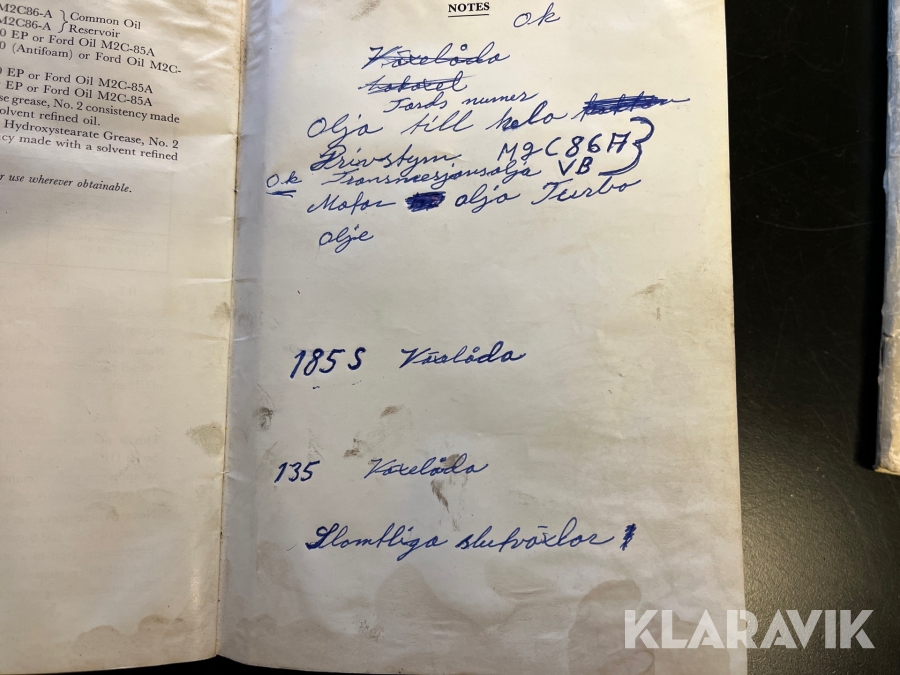 M2C86-A } Common Oil
M2C86-A } Reservoir
0 EP or Ford Oil M2C-85A
0 (Antifoam) or Ford Oil M2C-
0 EP or Ford Oil M2C-85A
EP or Ford Oil M2C-85A
se grease, No. 2 consistency made
solvent refined oil.
Hydroxystearate Grease, No. 2
ncy made with a solvent refined
r use wherever obtainable.
NOTES
O.k
Växelåda
Fords numer
Olja till hela
Drivstym M2C86A
O.k Transmesjonsolja VB
Motor olja Turbo
Olje
185 S Växelåda
135 Växelåda
Slamtliga slutväxlar
KLARAVIK